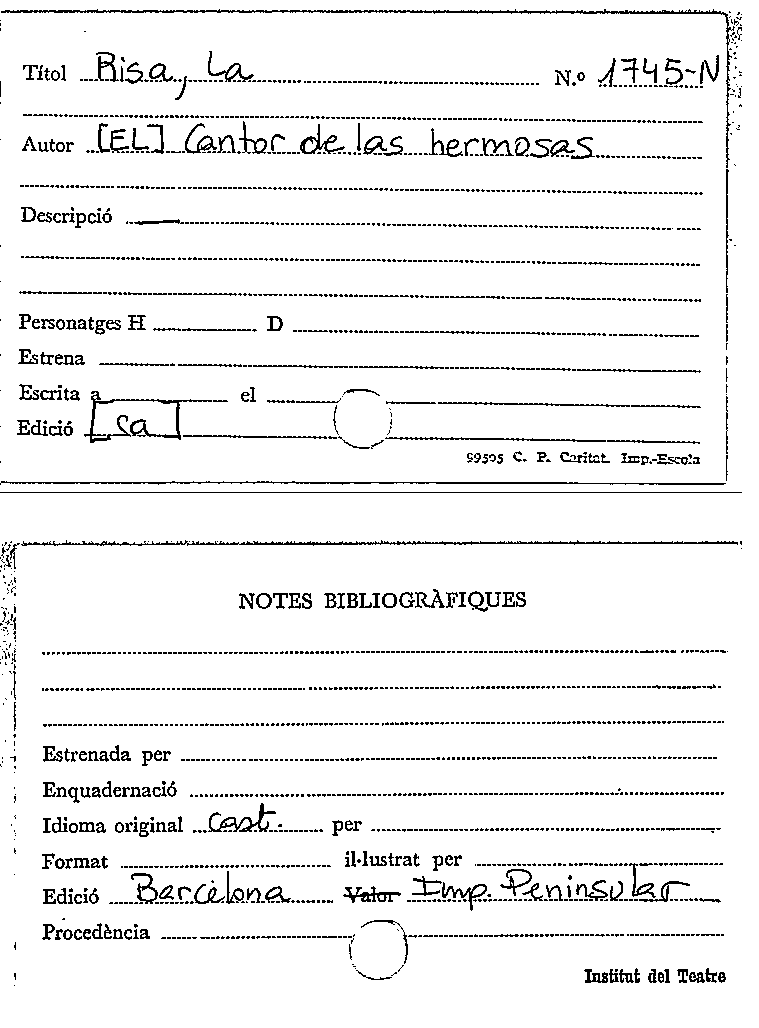 Títol Risa, La N.º 1745-N
Autor [EL] Cantor de las hermosas
Descripció —
Personatges H D
Estrena
Escrita a el
Edició ca
99505 C. P. Caritat. Imp.-Escola
NOTES BIBLIOGRÀFIQUES
Estrenada per
Enquadernació
Idioma original cast. per
Format il·lustrat per
Edició Barcelona Valor Imp. Peninsular
Procedència
Institut del Teatre